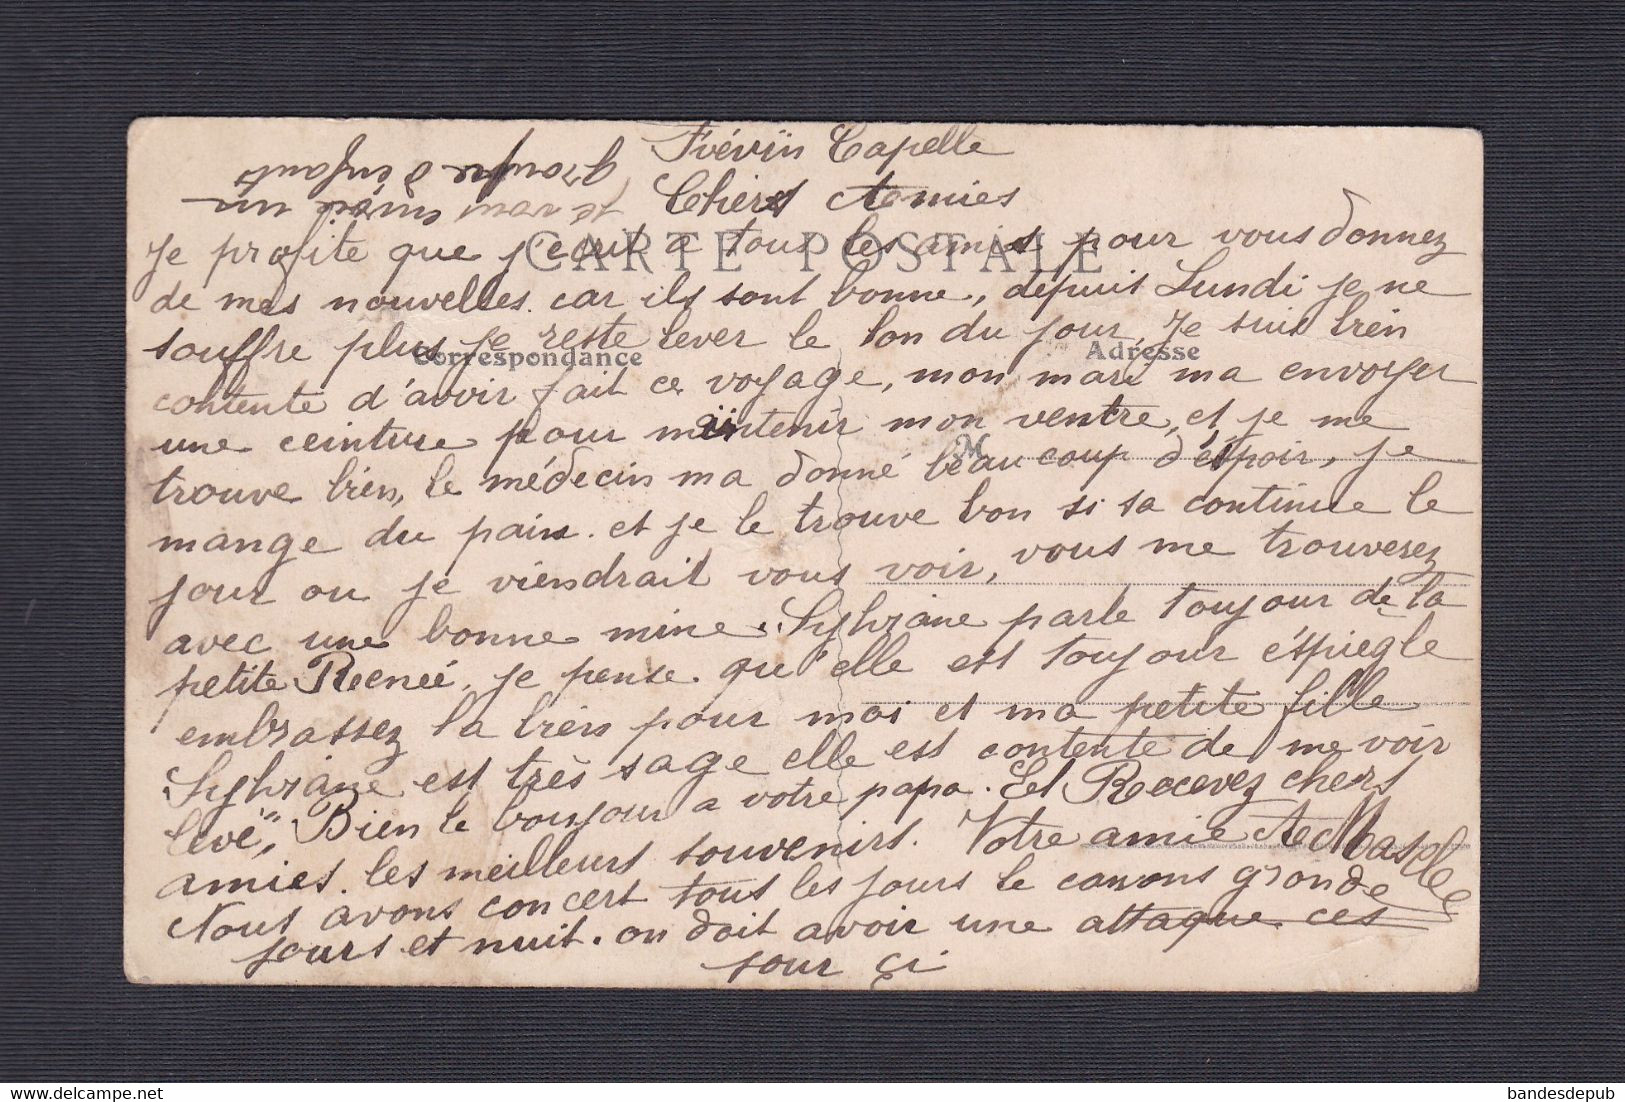 Frévin Capelle
Chers Amies
je vous envoie un
groupe d'enfant
CARTE POSTALE
Je profite que j'écrit a tous les amis pour vous donnez
de mes nouvelles. car ils sont bonne, depuis Lundi je ne
souffre plus, je reste lever le lon du jour, Je suis bien
Correspondance
Adresse
contente d'avoir fait ce voyage, mon mari ma envoyer
une ceinture pour maintenir mon ventre, et je me
M
trouve bien, le médecin ma donné beaucoup d'éspoir, je
mange du pain. et je le trouve bon si sa continue le
jour ou je viendrait vous voir, vous me trouverez
avec une bonne mine. Sylviane parle toujour de la
petite Reneé, je pense. qu'elle est toujour éspiegle
embrassez la bien pour moi et ma petite fille
Sylviane est très sage elle est contente de me voir
levé, Bien le boujour a votre papa. Et Recevez chers
amies. les meilleurs souvenirs. Votre amie
Nous avons concert tous les jours le canons gronde
jours et nuit. on doit avoir une attaque ces
jour çi
bandesdepub